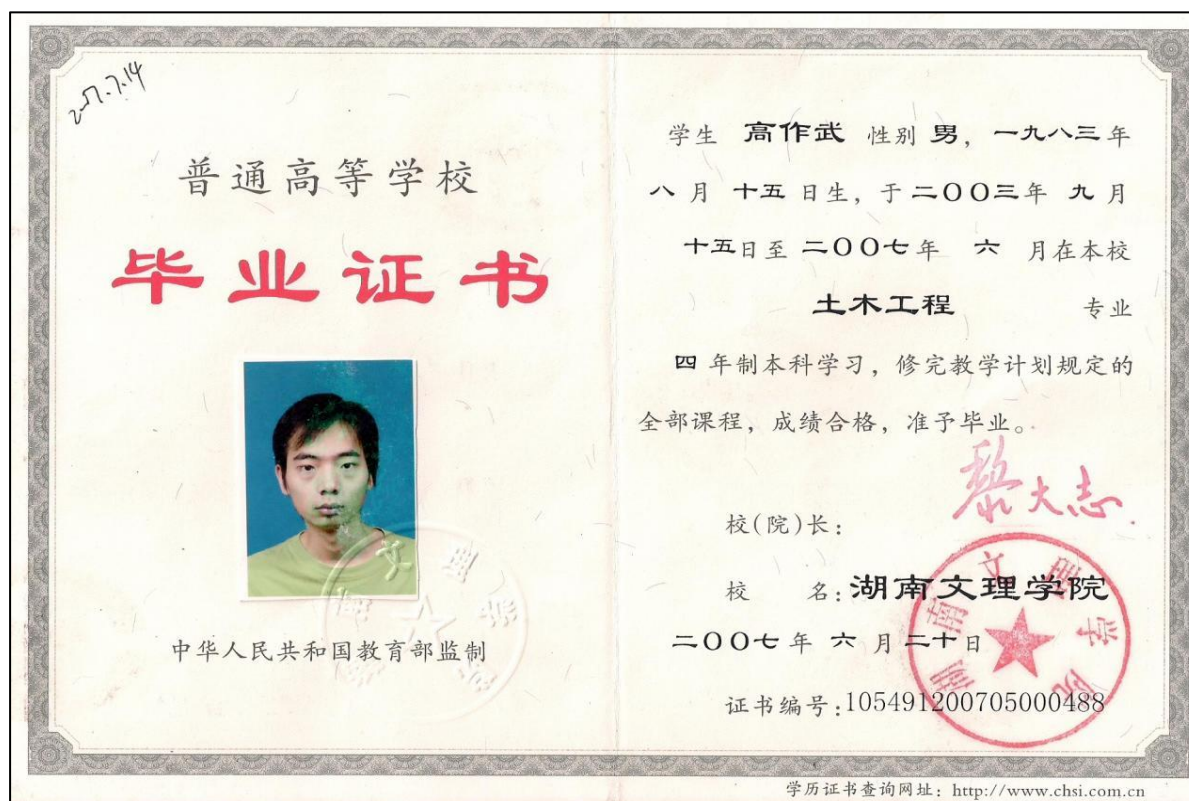 普通高等学校
毕业证书
中华人民共和国教育部监制
学生 高作武 性别 男，一九八三年
八月 十五日生，于二〇〇三年 九月
十五日至 二〇〇七年 六 月在本校
土木工程 专业
四 年制本科学习，修完教学计划规定的
全部课程，成绩合格，准予毕业。
黎大志
校(院)长：
校 名：湖南文理学院
二〇〇七年 六月二十日
湖南文理学院
证书编号：105491200705000488
学历证书查询网址：http://www.chsi.com.cn